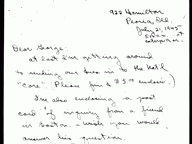 922 Hamilton
Peoria, Ill
July 21, 1945
Dear George,
at last I'm getting around
to sending our dues in to the Nat'l
"Core". Please find $5.00 enclosed.
I'm also enclosing a post
card of inquiry from a friend
in East - wish you would
answer his question.